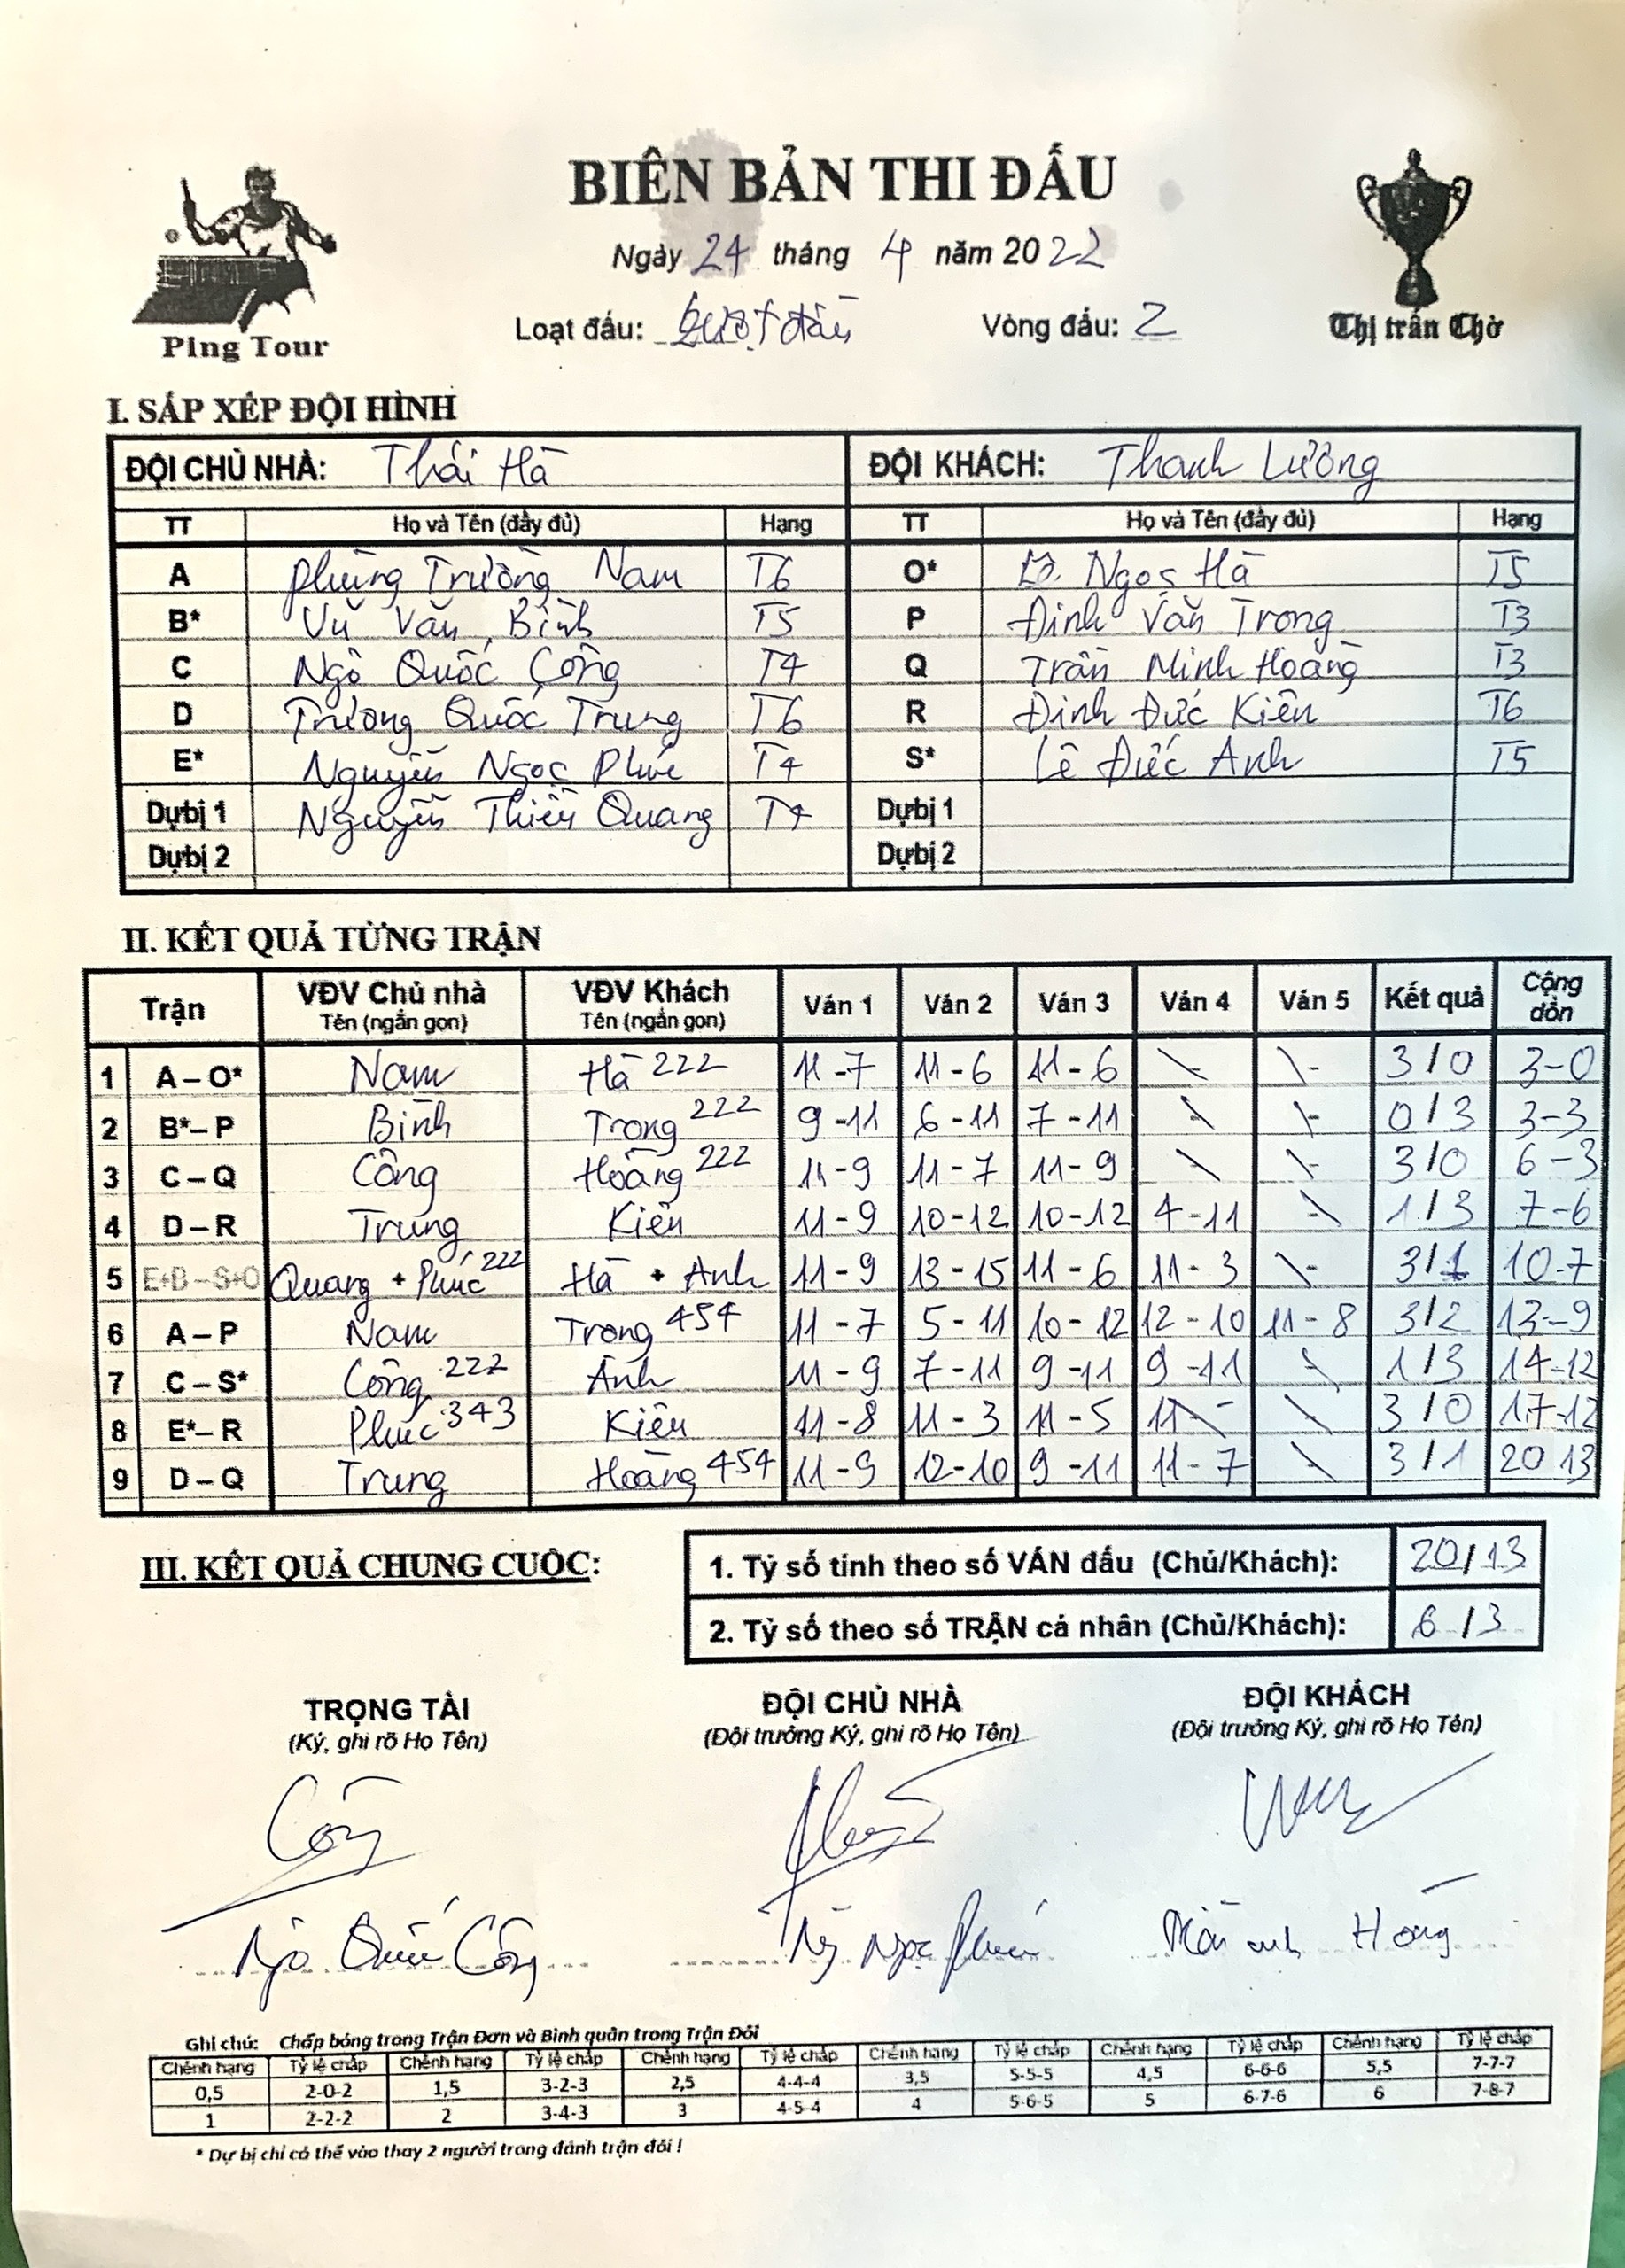 BIÊN BẢN THI ĐẤU
Ngày 24 tháng 4 năm 2022
Loạt đấu: Lượt đấu Vòng đấu: 2
Ping Tour
Thị trấn Chờ
I. SẮP XẾP ĐỘI HÌNH
ĐỘI CHỦ NHÀ: Thái Hà ĐỘI KHÁCH: Thanh Lương
TT Họ và Tên (đầy đủ) Hạng TT Họ và Tên (đầy đủ) Hạng
A Phùng Trường Nam T6 O* Ngọc Hà T5
B* Vũ Văn Bình T5 P Đinh Văn Trọng T3
C Ngô Quốc Công T4 Q Trần Minh Hoàng T3
D Trương Quốc Trung T6 R Đinh Đức Kiên T6
E* Nguyễn Ngọc Phúc T4 S* Lê Đức Anh T5
Dự bị 1 Nguyễn Thiện Quang T4 Dự bị 1
Dự bị 2 Dự bị 2
II. KẾT QUẢ TỪNG TRẬN
Trận VĐV Chủ nhà Tên (ngắn gọn) VĐV Khách Tên (ngắn gọn) Ván 1 Ván 2 Ván 3 Ván 4 Ván 5 Kết quả Cộng dồn
1 A – O* Nam Hà 222 11-7 11-6 11-6 3/0 3-0
2 B* – P Bình Trọng 222 9-11 6-11 7-11 0/3 3-3
3 C – Q Công Hoàng 222 11-9 11-7 11-9 3/0 6-3
4 D – R Trung Kiên 11-9 10-12 10-12 4-11 1/3 7-6
5 E+B – S+O Quang + Phúc 222 Hà + Anh 11-9 13-15 11-6 11-3 3/1 10-7
6 A – P Nam Trọng 454 11-7 5-11 10-12 12-10 11-8 3/2 13-9
7 C – S* Công 222 Anh 11-9 7-11 9-11 9-11 1/3 14-12
8 E* – R Phúc 343 Kiên 11-8 11-3 11-5 11- 3/0 17-12
9 D – Q Trung Hoàng 454 11-9 12-10 9-11 11-7 3/1 20 13
III. KẾT QUẢ CHUNG CUỘC:
1. Tỷ số tính theo số VÁN đấu (Chủ/Khách): 20/13
2. Tỷ số theo số TRẬN cá nhân (Chủ/Khách): 6/3
TRỌNG TÀI ĐỘI CHỦ NHÀ ĐỘI KHÁCH
(Ký, ghi rõ Họ Tên) (Đội trưởng Ký, ghi rõ Họ Tên) (Đội trưởng Ký, ghi rõ Họ Tên)
Công
Ngô Quốc Công Ng Ngọc Phúc
Ghi chú: Chấp bóng trong Trận Đơn và Bình quân trong Trận Đôi
Chênh hạng Tỷ lệ chấp Chênh hạng Tỷ lệ chấp Chênh hạng Tỷ lệ chấp Chênh hạng Tỷ lệ chấp Chênh hạng Tỷ lệ chấp Chênh hạng Tỷ lệ chấp
0,5 2-0-2 1,5 3-2-3 2,5 4-4-4 3,5 5-5-5 4,5 6-6-6 5,5 7-7-7
1 2-2-2 2 3-4-3 3 4-5-4 4 5-6-5 5 6-7-6 6 7-8-7
* Dự bị chỉ có thể vào thay 2 người trong đánh trận đôi !